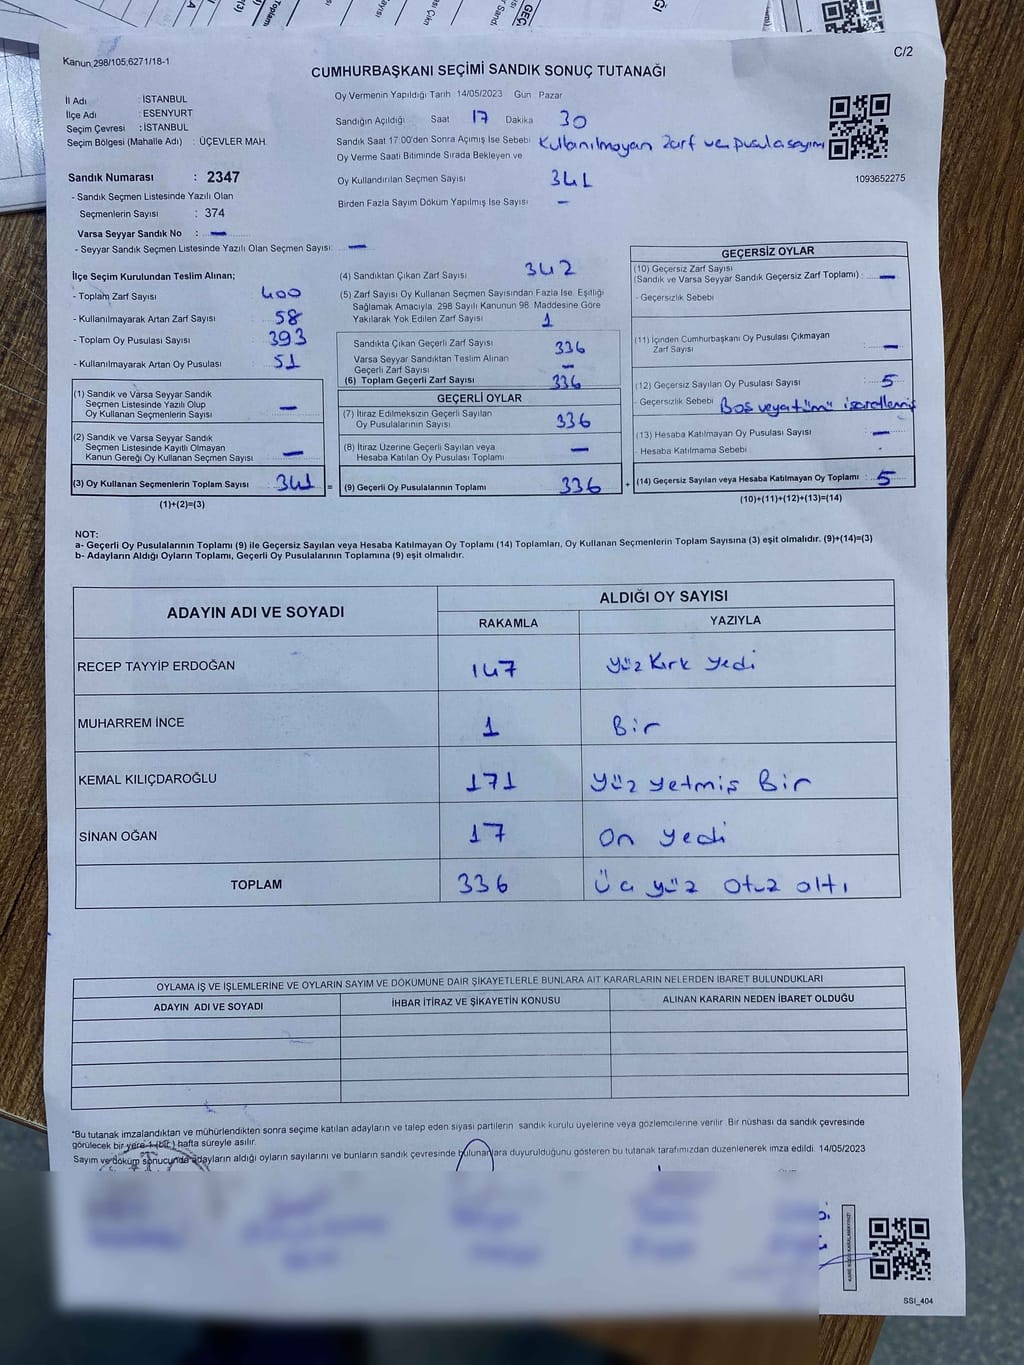 Kanun,298/105,6271/18-1
C/2
CUMHURBAŞKANI SEÇİMİ SANDIK SONUÇ TUTANAĞI
İl Adı : İSTANBUL
İlçe Adı : ESENYURT
Seçim Çevresi : İSTANBUL
Seçim Bölgesi (Mahalle Adı) : ÜÇEVLER MAH.
Sandık Numarası : 2347
- Sandık Seçmen Listesinde Yazılı Olan
Seçmenlerin Sayısı : 374
Varsa Seyyar Sandık No : –
- Seyyar Sandık Seçmen Listesinde Yazılı Olan Seçmen Sayısı: –
Oy Vermenin Yapıldığı Tarih 14/05/2023 Gün Pazar
Sandığın Açıldığı Saat 17 Dakika 30
Sandık Saat 17:00'den Sonra Açımış İse Sebebi Kullanılmayan zarf ve pusula sayımı
Oy Verme Saati Bitiminde Sırada Bekleyen ve
Oy Kullandırılan Seçmen Sayısı 341
Birden Fazla Sayım Döküm Yapılmış İse Sayısı –
1093652275
İlçe Seçim Kurulundan Teslim Alınan;
- Toplam Zarf Sayısı 400
- Kullanılmayarak Artan Zarf Sayısı 58
- Toplam Oy Pusulası Sayısı 393
- Kullanılmayarak Artan Oy Pusulası 51
(1) Sandık ve Varsa Seyyar Sandık
Seçmen Listesinde Yazılı Olup
Oy Kullanan Seçmenlerin Sayısı –
(2) Sandık ve Varsa Seyyar Sandık
Seçmen Listesinde Kayıtlı Olmayan
Kanun Gereği Oy Kullanan Seçmen Sayısı –
(3) Oy Kullanan Seçmenlerin Toplam Sayısı 341 =
(1)+(2)=(3)
(4) Sandıktan Çıkan Zarf Sayısı 342
(5) Zarf Sayısı Oy Kullanan Seçmen Sayısından Fazla İse, Eşitliği
Sağlamak Amacıyla, 298 Sayılı Kanunun 98. Maddesine Göre
Yakılarak Yok Edilen Zarf Sayısı 1
Sandıkta Çıkan Geçerli Zarf Sayısı 336
Varsa Seyyar Sandıktan Teslim Alınan
Geçerli Zarf Sayısı –
(6) Toplam Geçerli Zarf Sayısı 336
GEÇERLİ OYLAR
(7) İtiraz Edilmeksizin Geçerli Sayılan
Oy Pusulalarının Sayısı 336
(8) İtiraz Üzerine Geçerli Sayılan veya
Hesaba Katılan Oy Pusulası Toplamı –
(9) Geçerli Oy Pusulalarının Toplamı 336 +
GEÇERSİZ OYLAR
(10) Geçersiz Zarf Sayısı
(Sandık ve Varsa Seyyar Sandık Geçersiz Zarf Toplamı) : –
- Geçersizlik Sebebi
(11) İçinden Cumhurbaşkanı Oy Pusulası Çıkmayan
Zarf Sayısı –
(12) Geçersiz Sayılan Oy Pusulası Sayısı : 5
- Geçersizlik Sebebi Boş veya tümü işaretlenmiş
(13) Hesaba Katılmayan Oy Pusulası Sayısı : –
- Hesaba Katılmama Sebebi
(14) Geçersiz Sayılan veya Hesaba Katılmayan Oy Toplamı : 5
(10)+(11)+(12)+(13)=(14)
NOT:
a- Geçerli Oy Pusulalarının Toplamı (9) ile Geçersiz Sayılan veya Hesaba Katılmayan Oy Toplamı (14) Toplamları, Oy Kullanan Seçmenlerin Toplam Sayısına (3) eşit olmalıdır. (9)+(14)=(3)
b- Adayların Aldığı Oyların Toplamı, Geçerli Oy Pusulalarının Toplamına (9) eşit olmalıdır.
ADAYIN ADI VE SOYADI
ALDIĞI OY SAYISI
RAKAMLA YAZIYLA
RECEP TAYYİP ERDOĞAN 147 Yüz Kırk Yedi
MUHARREM İNCE 1 Bir
KEMAL KILIÇDAROĞLU 171 Yüz yetmiş Bir
SİNAN OĞAN 17 On Yedi
TOPLAM 336 Üç yüz Otuz altı
OYLAMA İŞ VE İŞLEMLERİNE VE OYLARIN SAYIM VE DÖKÜMÜNE DAİR ŞİKAYETLERLE BUNLARA AİT KARARLARIN NELERDEN İBARET BULUNDUKLARI
ADAYIN ADI VE SOYADI İHBAR İTİRAZ VE ŞİKAYETİN KONUSU ALINAN KARARIN NEDEN İBARET OLDUĞU
*Bu tutanak imzalandıktan ve mühürlendikten sonra seçime katılan adayların ve talep eden siyasi partilerin sandık kurulu üyelerine veya gözlemcilerine verilir. Bir nüshası da sandık çevresinde
görülecek bir yere 1 (bir) hafta süreyle asılır.
Sayım ve döküm sonucunda adayların aldığı oyların sayılarını ve bunların sandık çevresinde bulunanlara duyurulduğunu gösteren bu tutanak tarafımızdan düzenlenerek imza edildi. 14/05/2023
SSI_404